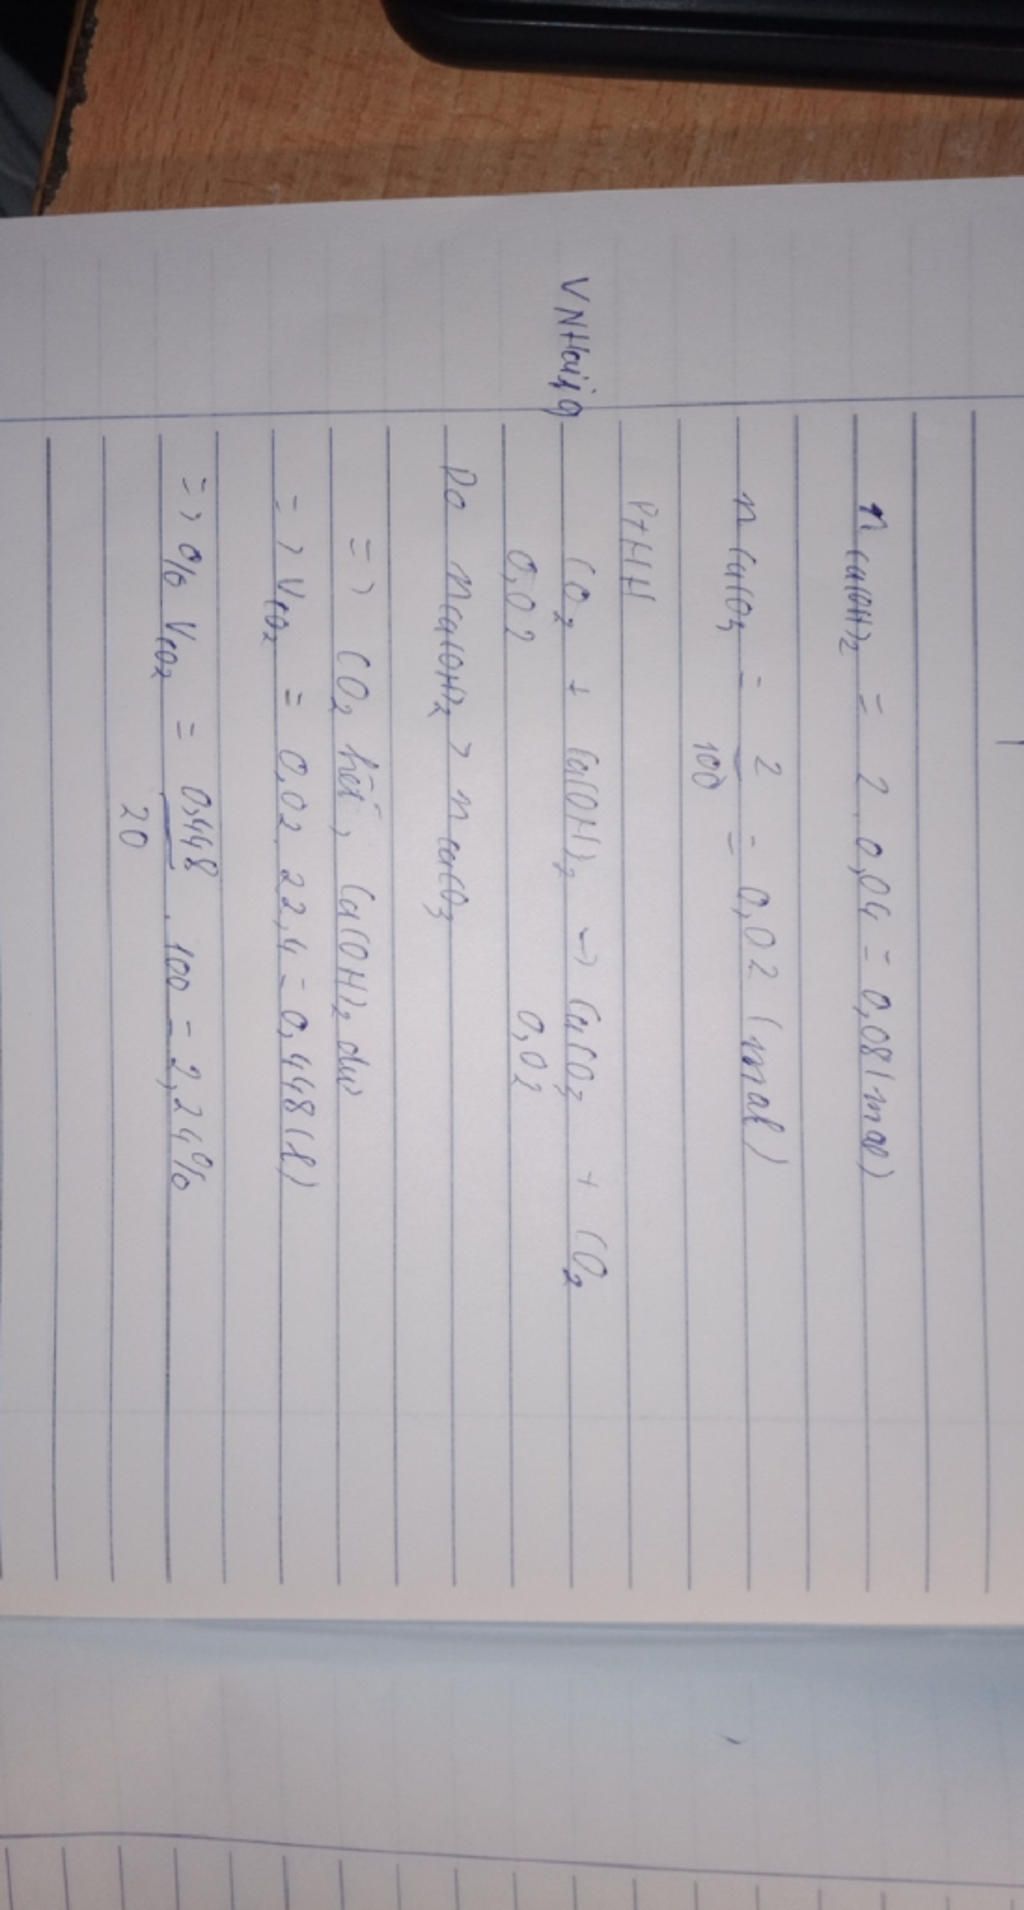 n Ca(OH)2 = 2 . 0,04 = 0,08 (mol)
n CaCO3 = 2/100 = 0,02 (mol)
PTHH
CO2 + Ca(OH)2 -> CaCO3 + CO2
0,02 0,02
Do n Ca(OH)2 > n CaCO3
=> CO2 hết, Ca(OH)2 dư
=> VCO2 = 0,02 . 22,4 = 0,448 (l)
=> % VCO2 = 0,448/20 . 100 = 2,24%